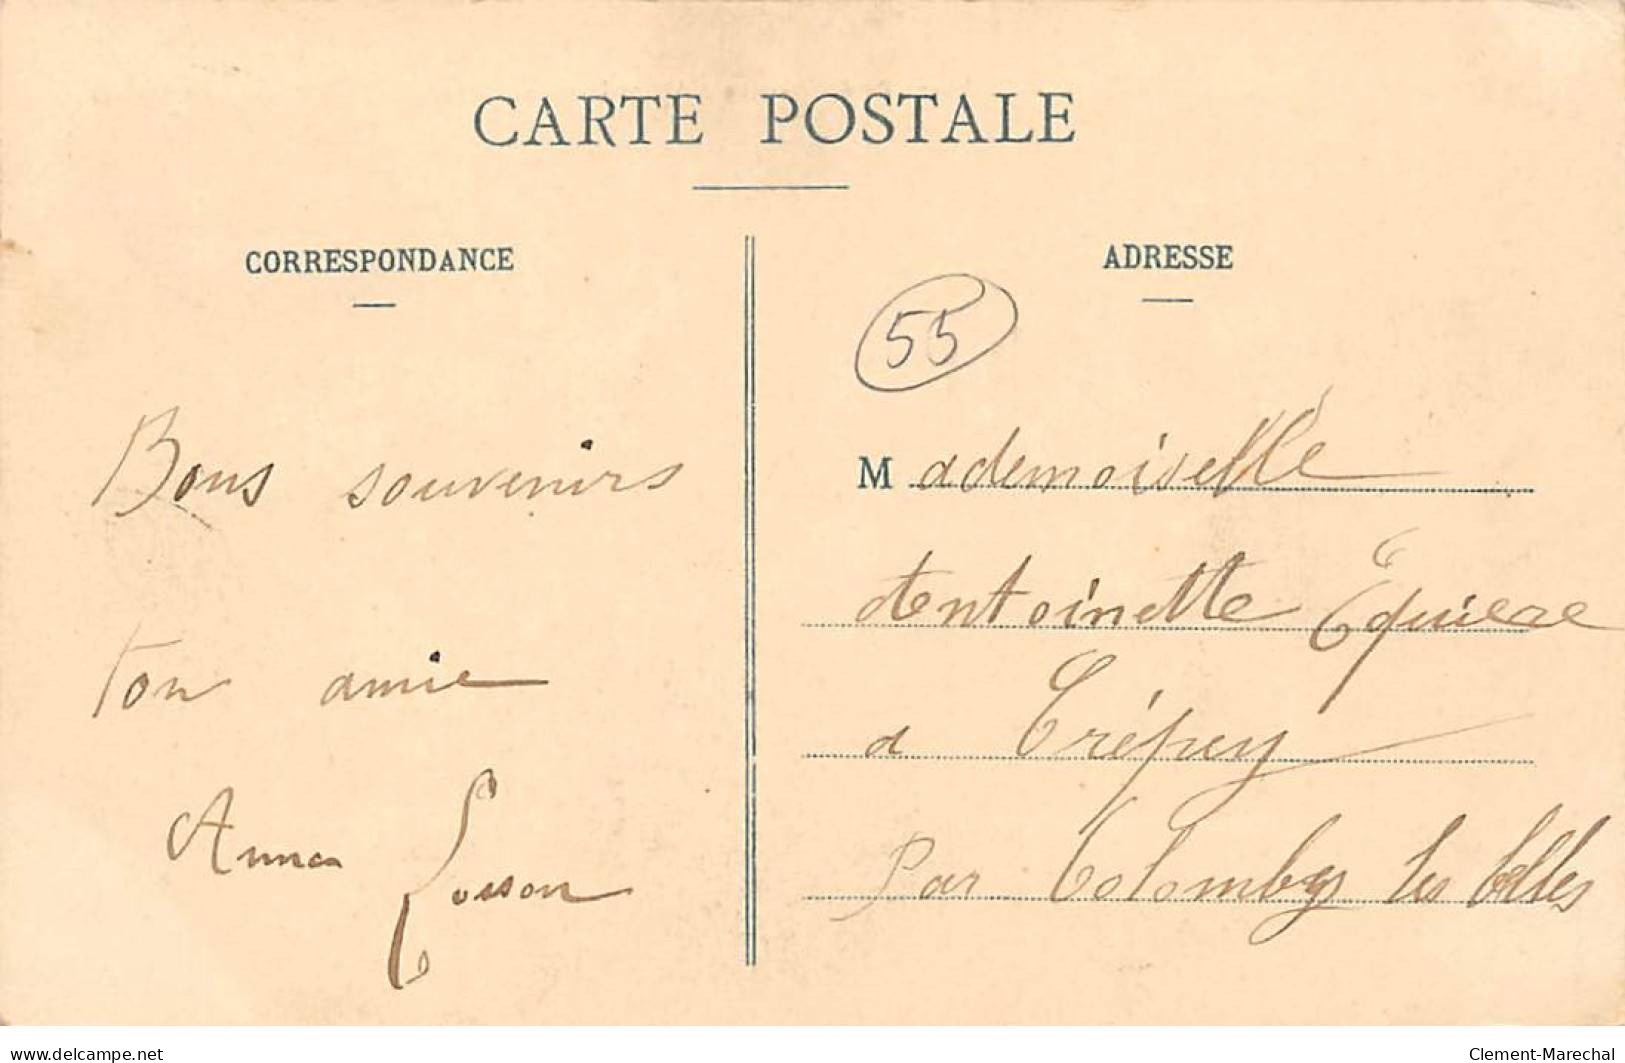 CARTE POSTALE
CORRESPONDANCE
Bons souvenirs
ton amie
Anna Losson
ADRESSE
55
Mademoiselle
Antoinette
a Crépey
Par Colombey les belles
www.delcampe.net
Clement-Marechal